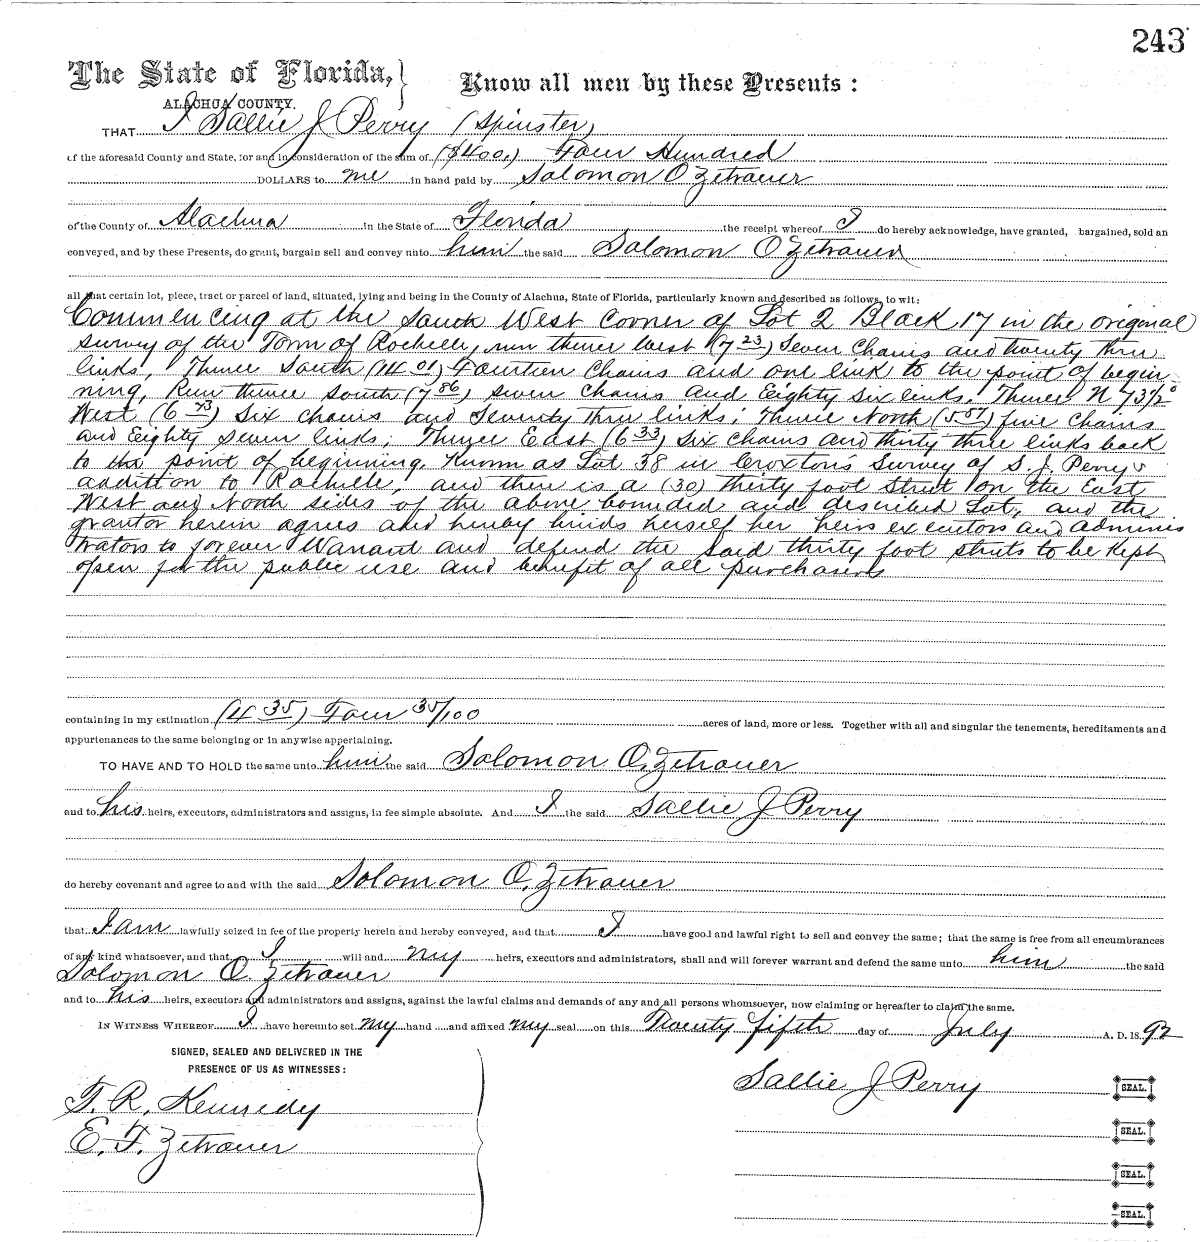 243
The State of Florida, } Know all men by these Presents :
ALACHUA COUNTY.
THAT I Sallie J Perry (Spinster)
of the aforesaid County and State, for and in consideration of the sum of ($400.) Four Hundred
DOLLARS to me in hand paid by Solomon O Zetrouer
of the County of Alachua in the State of Florida the receipt whereof I do hereby acknowledge, have granted, bargained, sold an
conveyed, and by these Presents, do grant, bargain sell and convey unto him the said Solomon O Zetrouer
all that certain lot, piece, tract or parcel of land, situated, lying and being in the County of Alachua, State of Florida, particularly known and described as follows, to wit:
Commencing at the South West Corner of Lot 2 Block 17 in the original
survey of the Town of Rochelle, run thence West (7 23) Seven Chains and twenty three
links, Thence South (14 01) Fourteen Chains and one link to the point of begin
ning, Run thence South (7 86) seven Chains and Eighty six links. Thence N 73½°
West (6 73) Six chains and Seventy three links; Thence North (5 87) five Chains
and Eighty seven links; Thence East (6 33) Six chains and thirty three links back
to the point of beginning. Known as Lot 38 in Croxton's Survey of S. J. Perry's
addition to Rochelle, and there is a (30) thirty foot Street on the East
West and North sides of the above bounded and described Lot, and the
grantor herein agrees and hereby binds herself her heirs executors and adminis
trators to forever Warrant and defend the said thirty foot streets to be kept
open for the public use and benefit of all purchasers
containing in my estimation (4 35) Four 35/100 acres of land, more or less. Together with all and singular the tenements, hereditaments and
appurtenances to the same belonging or in anywise appertaining.
TO HAVE AND TO HOLD the same unto him the said Solomon O. Zetrouer
and to his heirs, executors, administrators and assigns, in fee simple absolute. And I the said Sallie J Perry
do hereby covenant and agree to and with the said Solomon O. Zetrouer
that I am lawfully seized in fee of the property herein and hereby conveyed, and that I have good and lawful right to sell and convey the same; that the same is free from all encumbrances
of any kind whatsoever, and that I will and my heirs, executors and administrators, shall and will forever warrant and defend the same unto him the said
Solomon O. Zetrouer
and to his heirs, executors and administrators and assigns, against the lawful claims and demands of any and all persons whomsoever, now claiming or hereafter to claim the same.
IN WITNESS WHEREOF I have hereunto set my hand and affixed my seal on this Twenty fifth day of July A. D. 18 92
SIGNED, SEALED AND DELIVERED IN THE
PRESENCE OF US AS WITNESSES:
Sallie J Perry SEAL.
T. R. Kennedy
SEAL.
E. F. Zetrouer
SEAL.
SEAL.